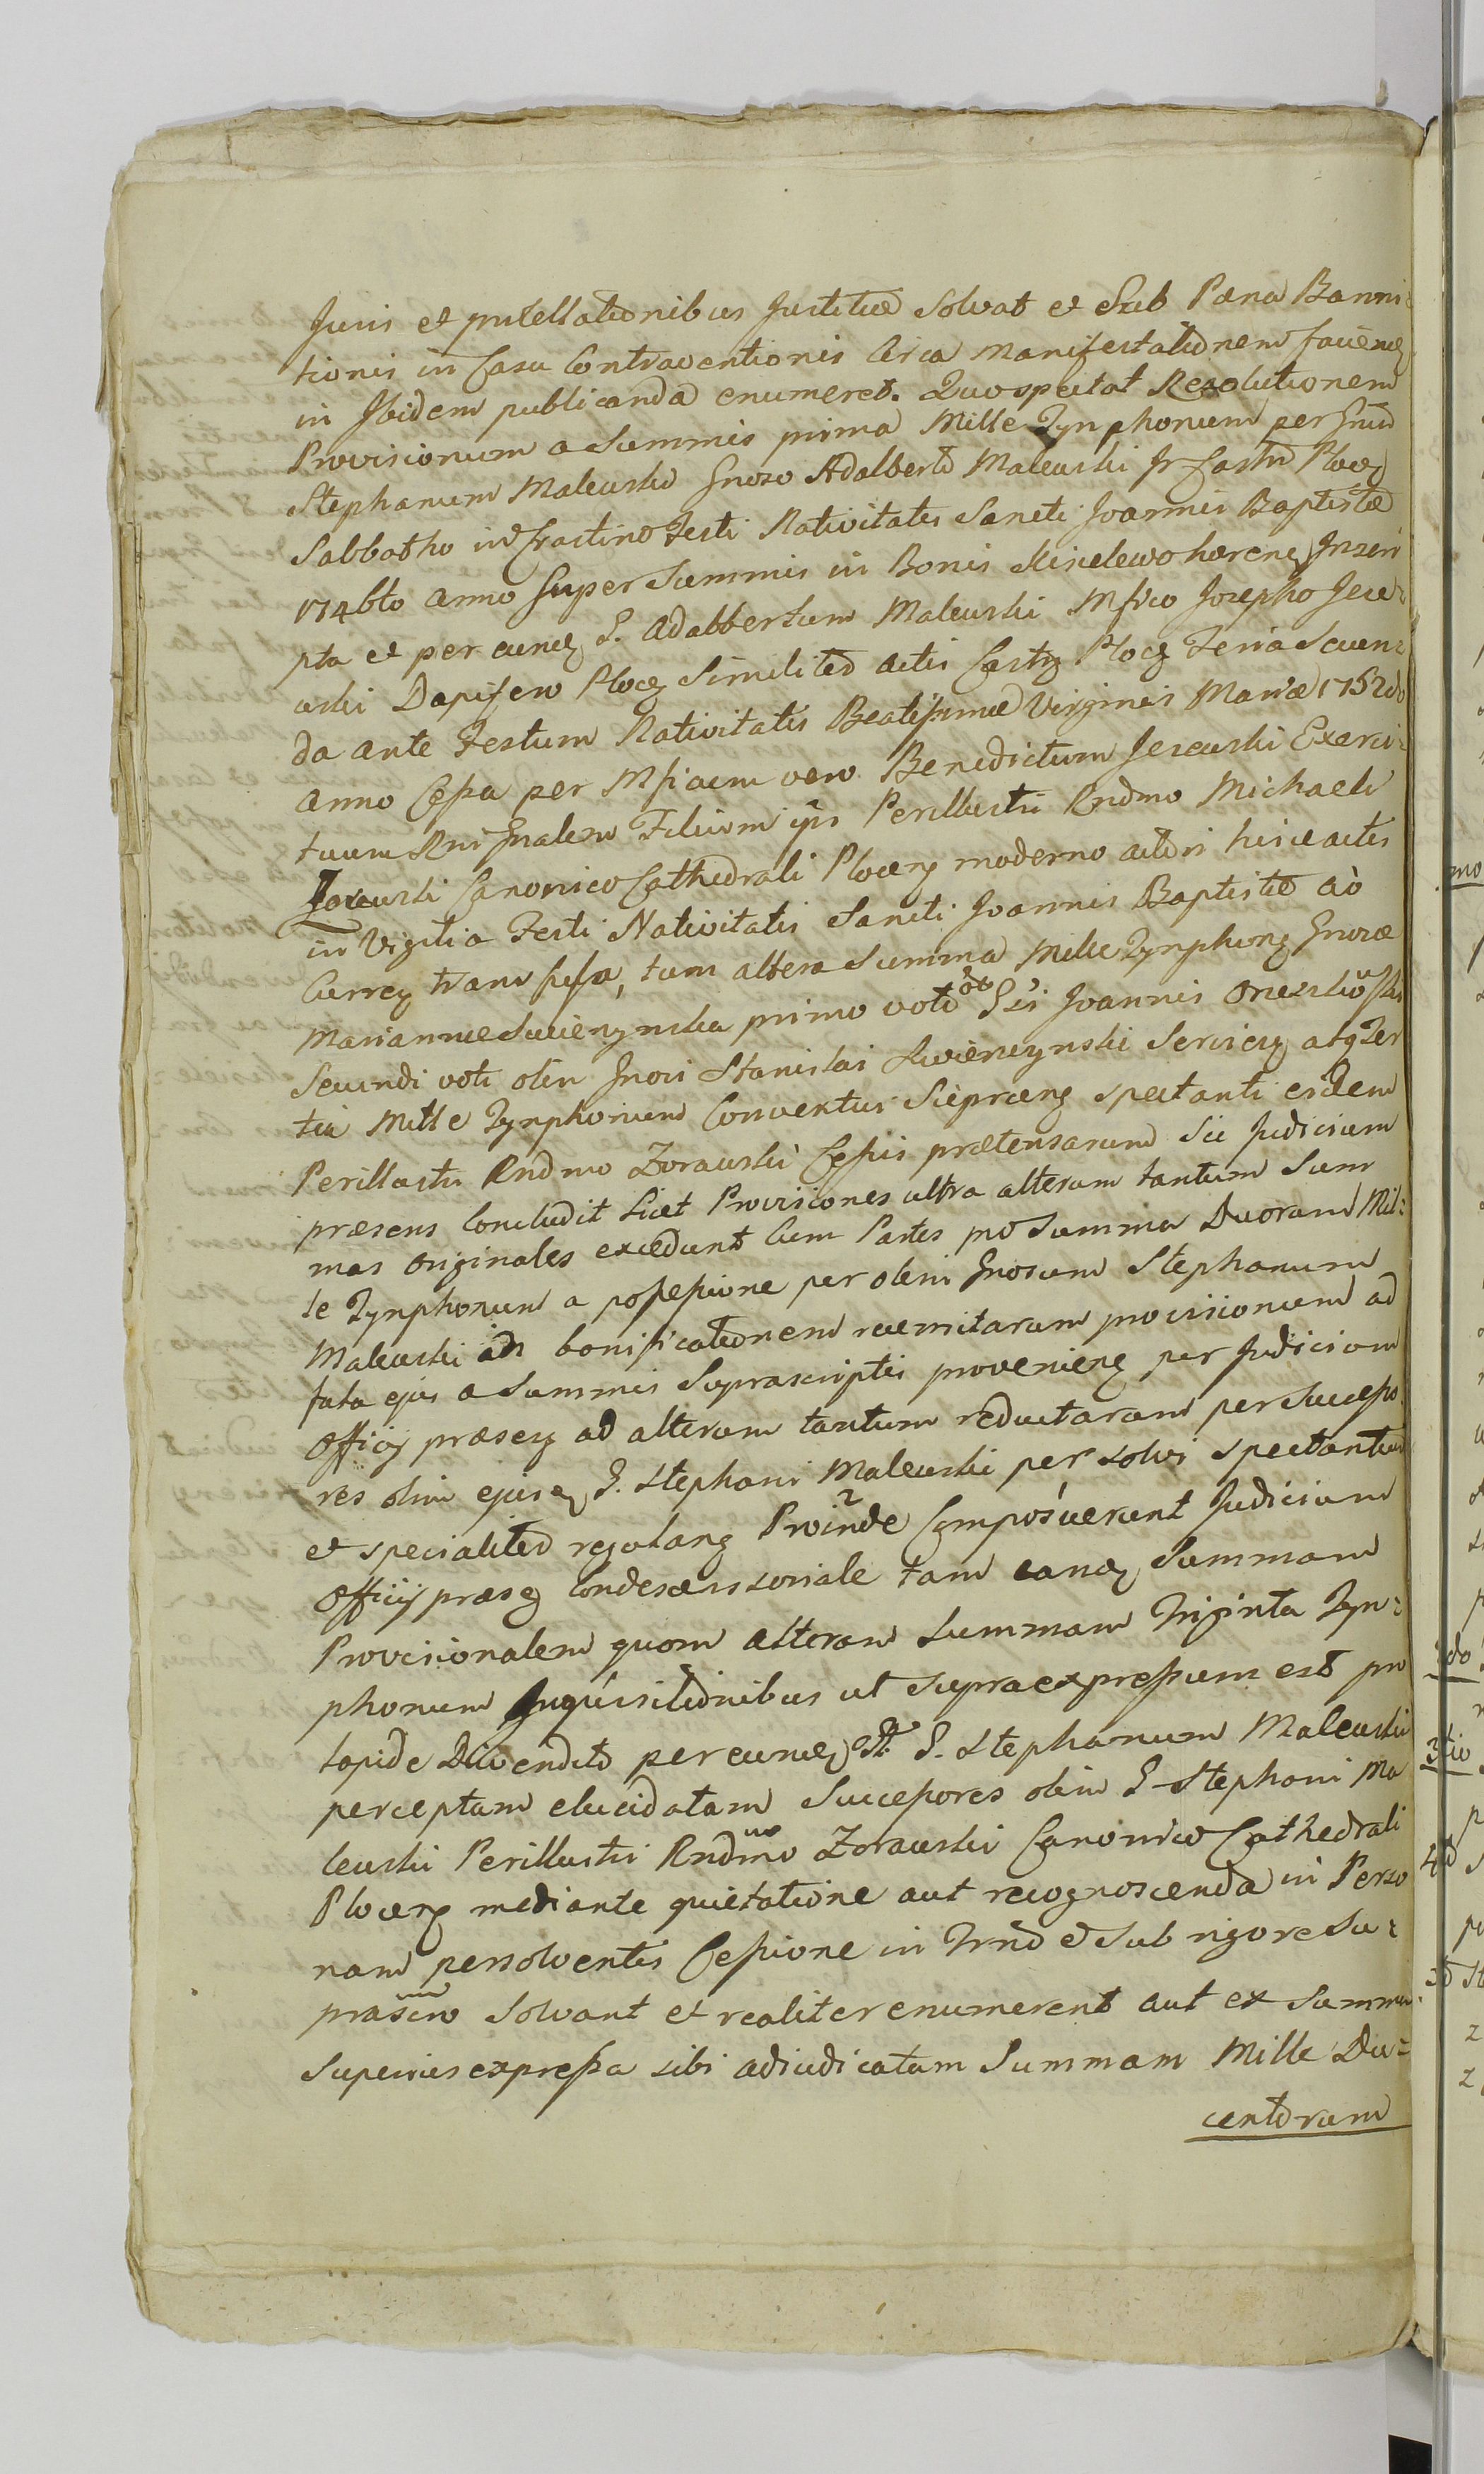 Juris et protellationibus Justitiæ Solvat et Sub Pæna Banni=
tionis in Casu Contraventionis Circa Manifestationem
in Ibidem publicanda enumeret. Quo spectat Resolutionem
Provisionum a Summis prima Mille Tynphonum per
Stephanum Malewski Gnoso Adalberto Malewski In Castro Ploceñ
Sabbatho in Crastino Festi Nativitatis Sancti Joannis Baptistæ
1746to anno Super Summis in Bonis hæreñ Inscri
pta et per eunđ G. Adalbertum Malewski Mfico Josepho Jere=
wski Dapifero Ploceñ Similiter actis Castri Ploceñ Feria Secun=
da ante Festum Nativitatis Beatissimæ Virginis Mariæ 1752do
Anno Cessa per Mficum vero Benedictum Jerewski Exerci=
tuum Rni Gnalem Filium ejus Perillustri Rndmo Michaeli
Zorawski Canonico Cathedrali Ploceñ moderno actori hisce actis
in Vigilia Festi Nativitatis Sancti Joannis Baptistæ aõ
Curreñ transfusa, tum altera Summa Mille Tynphonũ Gnosæ
Mariannæ primo voto Gsi Joannis
Secundi voti olim Gnosi Stanislai atq Ter
tia Mille Tynphonum Conventui Sieprceñ spectanti eidem
Perillustri Rndmo Zorawski Cessis prætensarum Sii Judicium
præsens Concludit Licet Provisiones ultra alterum tantum Sum
mas Originales excedunt Cum Partes pro Summa Duorum Mil=
le Tynphonum a possessione per olim Gnosum Stephanum
Malewski ad bonificationem provisionum ad
fata ejus a Summis Suprascriptis provenieñ per Judicium
Officij præseñ ad alterum tantum reductarum per Successo
res olim ejusđ G. Stephani Malewski persolvi spectantium
et specialiter Proinde Composuerunt Judicium
Officij præseñ Condescensoriale tam eanđ Summam
Provisionalem quam alteram Summam Triginta Tyn=
phonum Inquisitionibus ut supra expressum est pro
lapide Divendito per eunđ G. Stephanum Malewski
perceptam elucidatam Successores olim G. Stephani Ma
lewski Perillustri Rndmo Zorawski Canonico Cathedrali
Ploceñ mediante quietatione aut recognoscenda in Perso
nam persolventis Cessione in Trno et Sub rigore Su=
prascrio Solvant et realiter enumerent aut ex Summa
Superius expressa sibi adiudicatam Summam Mille Du=
centorum